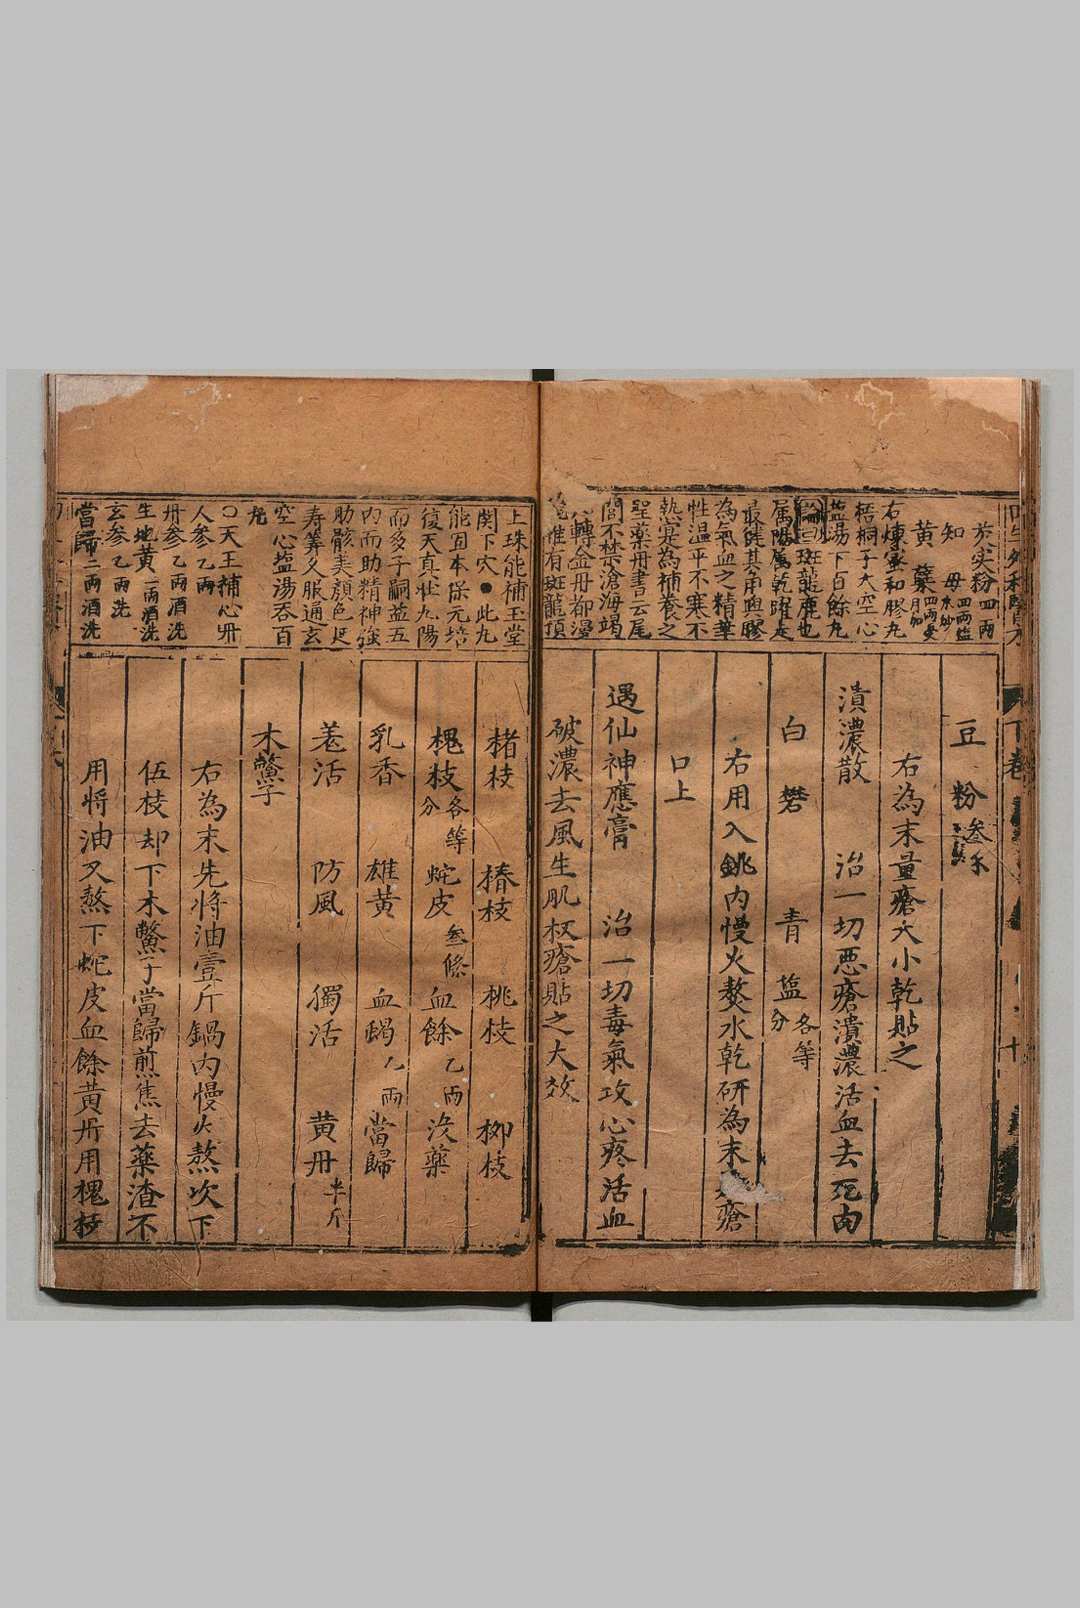 於尖粉四兩
知母四兩盐水炒
黄蘗四兩
右煉蜜和膠丸
梧桐子大空心
盐湯下百餘丸
斑龍鹿也
属陽属乾曜是
最徤其角血膠
為氣血之精華
性温平不寒不
熱定為補養之
聖藥丹書云尾
閭不禁滄海竭
轉金丹都漫
惟有斑龍頂
下卷
豆粉叁
右為末量瘡大小乾貼之
潰濃散 治一切悪瘡潰濃活血去死肉
白礬 青盐各等分
右用入銚内慢火熬水乾研為末 瘡
口上
遇仙神應膏 治一切毒氣攻心疼活血
破濃去風生肌杖瘡貼之大效
上珠能補玉堂
関下穴●此丸
能固本保元培
復天真壮九陽
而多子嗣益五
内而助精神強
助骸美顔色延
寿筭久服通玄
空心盐湯吞百
丸
〇天王補心丹
人参乙兩
丹参乙兩酒洗
生地黄一兩酒洗
玄参乙兩洗
當歸二兩酒洗
楮枝 椿枝 桃枝 柳枝
槐枝各等分 蛇皮叁條 血餘乙兩 没藥
乳香 雄黄 血蝎乙兩 當歸
羗活 防風 獨活 黄丹半斤
木鱉子
右為末先将油壹斤鍋内慢火熬次下
伍枝却下木鱉子當歸煎焦去藥渣不
用将油又熬下蛇皮血餘黄丹用槐枝